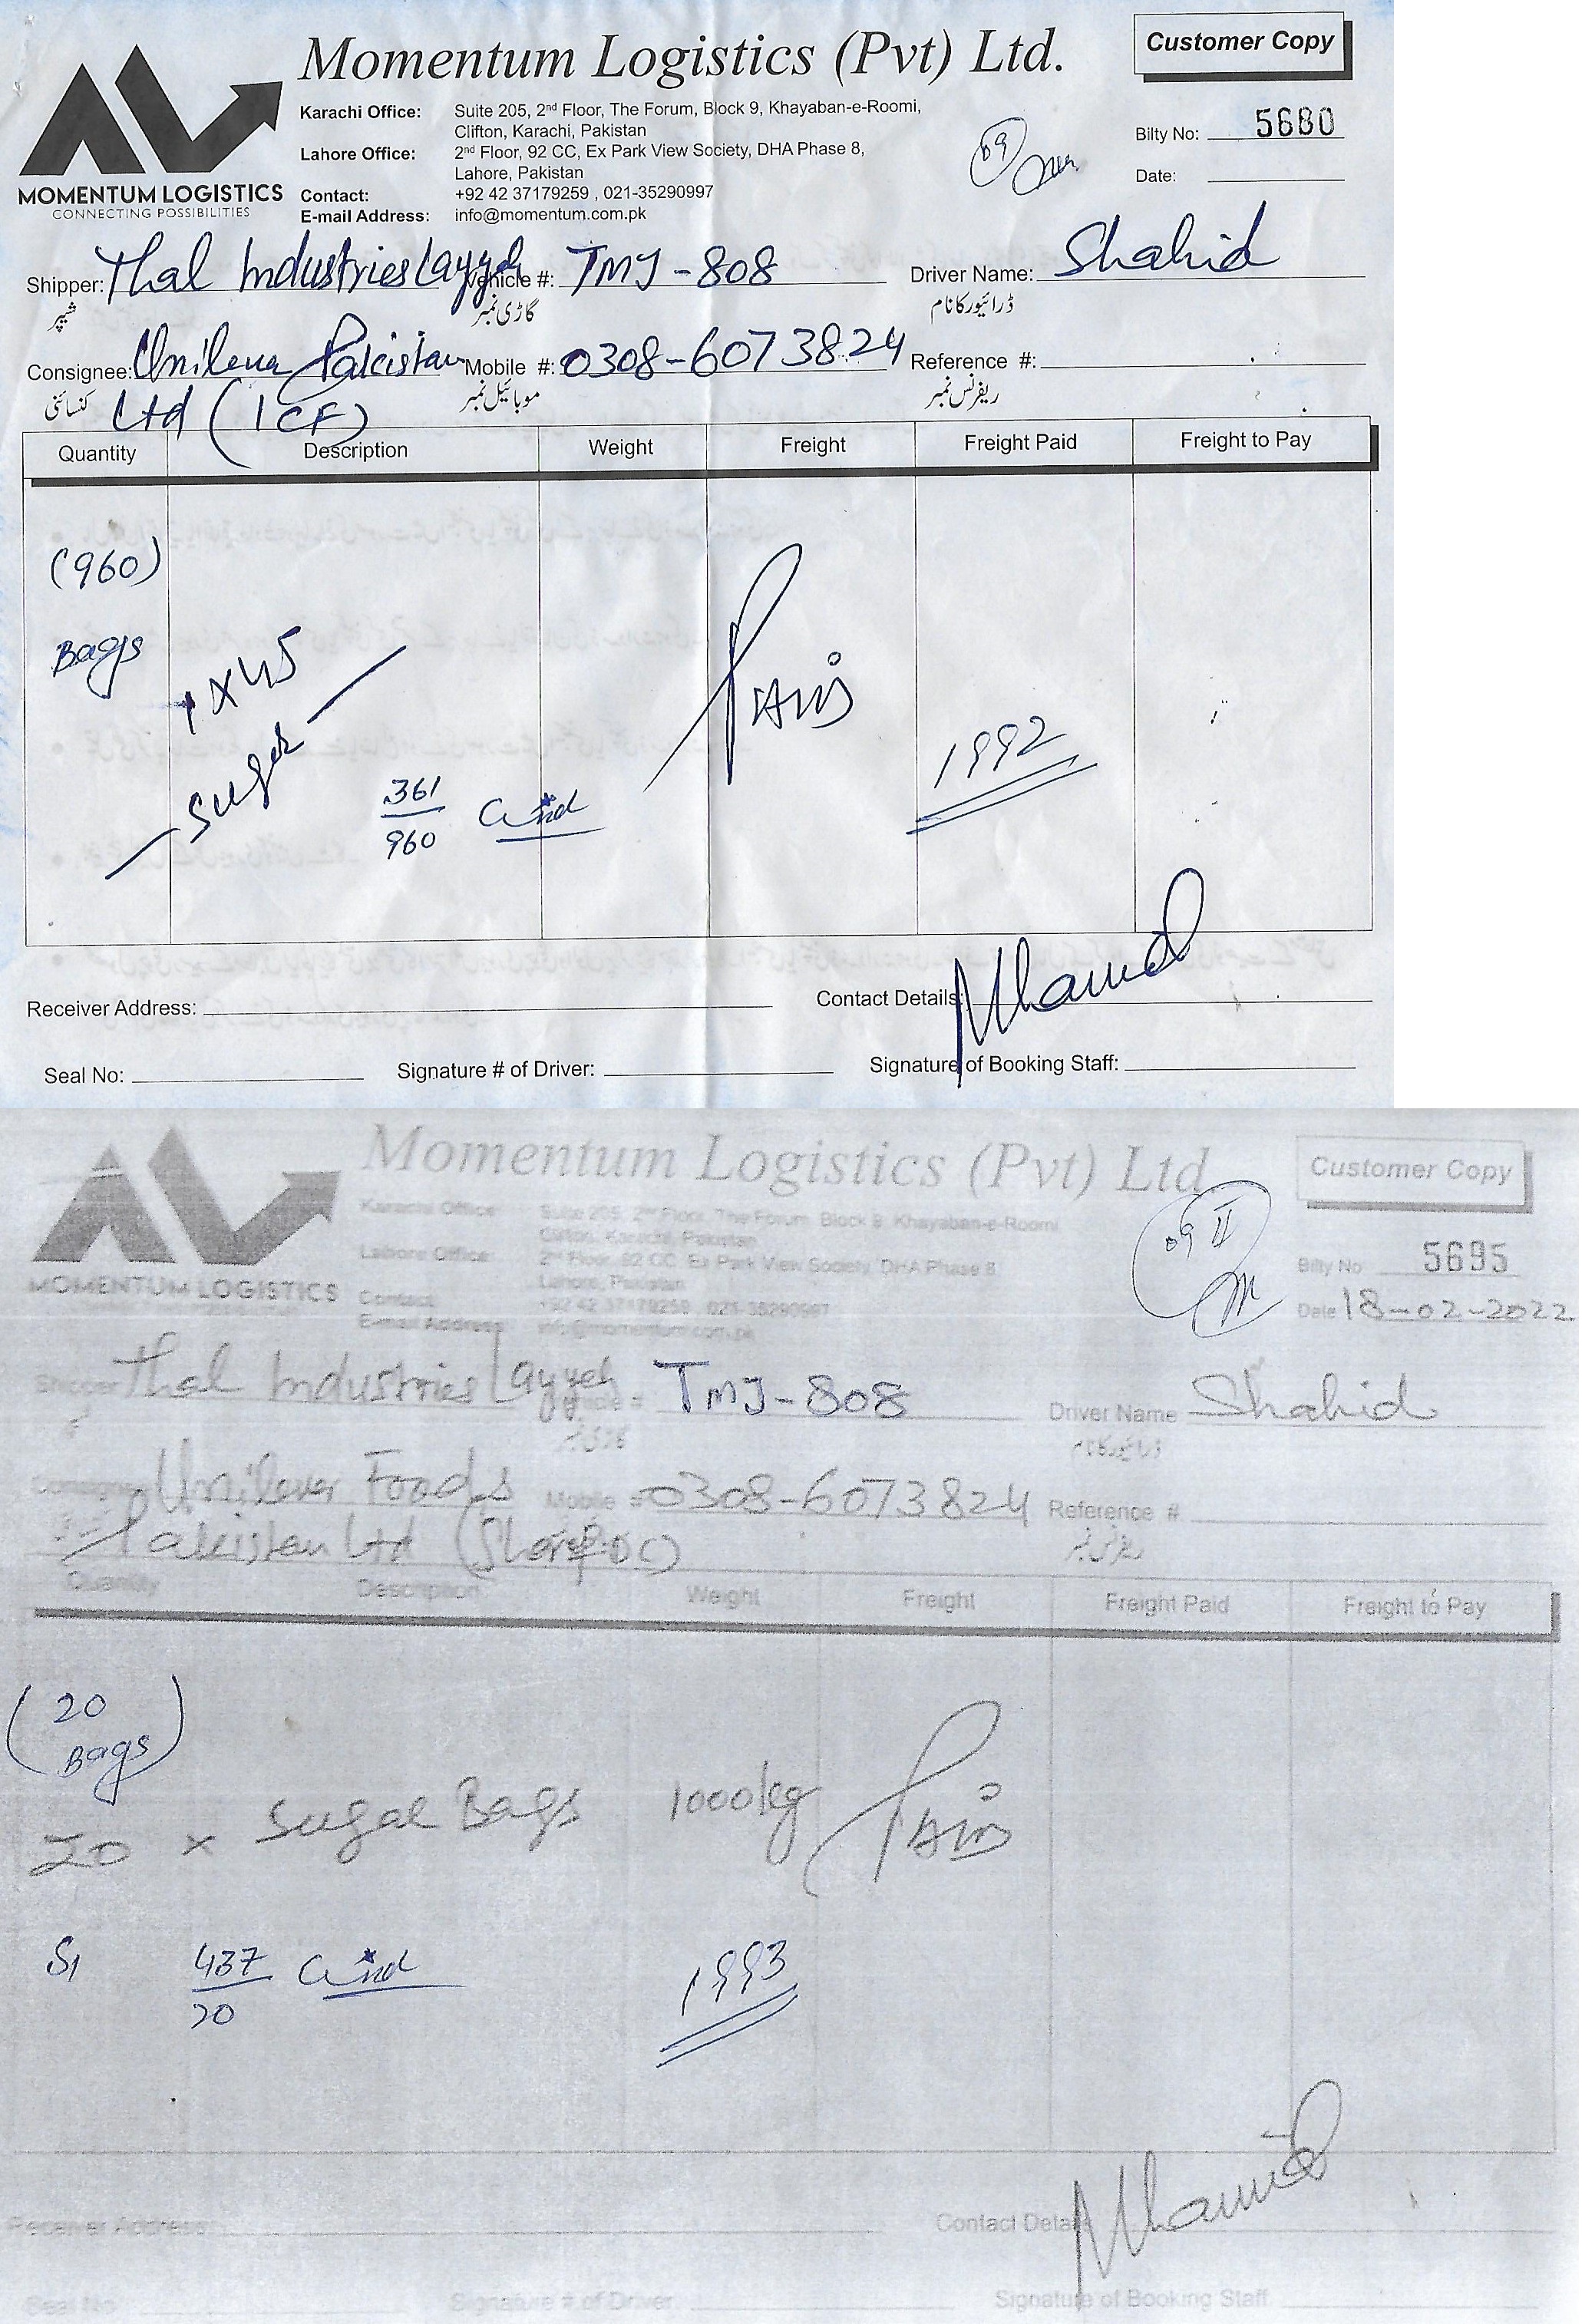 Momentum Logistics (Pvt) Ltd.
Customer Copy
MOMENTUM LOGISTICS
CONNECTING POSSIBILITIES
Karachi Office: Suite 205, 2nd Floor, The Forum, Block 9, Khayaban-e-Roomi,
Clifton, Karachi, Pakistan
Lahore Office: 2nd Floor, 92 CC, Ex Park View Society, DHA Phase 8,
Lahore, Pakistan
Contact: +92 42 37179259 , 021-35290997
E-mail Address: info@momentum.com.pk
09
Bilty No: 5680
Date:
Shipper: Thal Industries Layyah Vehicle #: TMJ-808 Driver Name: Shahid
شیپر گاڑی نمبر ڈرائیور کا نام
Consignee: Unilever Pakistan Mobile #: 0308-6073824 Reference #:
کنسائنی موبائیل نمبر ریفرنس نمبر
Ltd (ICF)
Quantity Description Weight Freight Freight Paid Freight to Pay
(960)
Bags
1x45
Sugar
361
960
1992
Receiver Address: Contact Details:
Seal No: Signature # of Driver: Signature of Booking Staff:
Momentum Logistics (Pvt) Ltd
Customer Copy
MOMENTUM LOGISTICS
Karachi Office Suite 205, 2nd Floor, The Forum, Block 9, Khayaban-e-Roomi
Clifton, Karachi, Pakistan
Lahore Office 2nd Floor, 92 CC, Ex Park View Society, DHA Phase 8
Lahore, Pakistan
Contact +92 42 37179259 , 021-35290997
E-mail Address info@momentum.com.pk
09 II
Bilty No 5695
Date 18-02-2022
Shipper Thal Industries Layyah Vehicle # TMJ-808 Driver Name Shahid
گاڑی نمبر ڈرائیور کا نام
Consignee Unilever Foods Mobile # 0308-6073824 Reference #
ریفرنس نمبر
Pakistan Ltd
Quantity Description Weight Freight Freight Paid Freight to Pay
(20
Bags)
20 x Sugar Bags 1000kg
S1
437
20
1993
Receiver Address Contact Details
Seal No Signature # of Driver Signature of Booking Staff